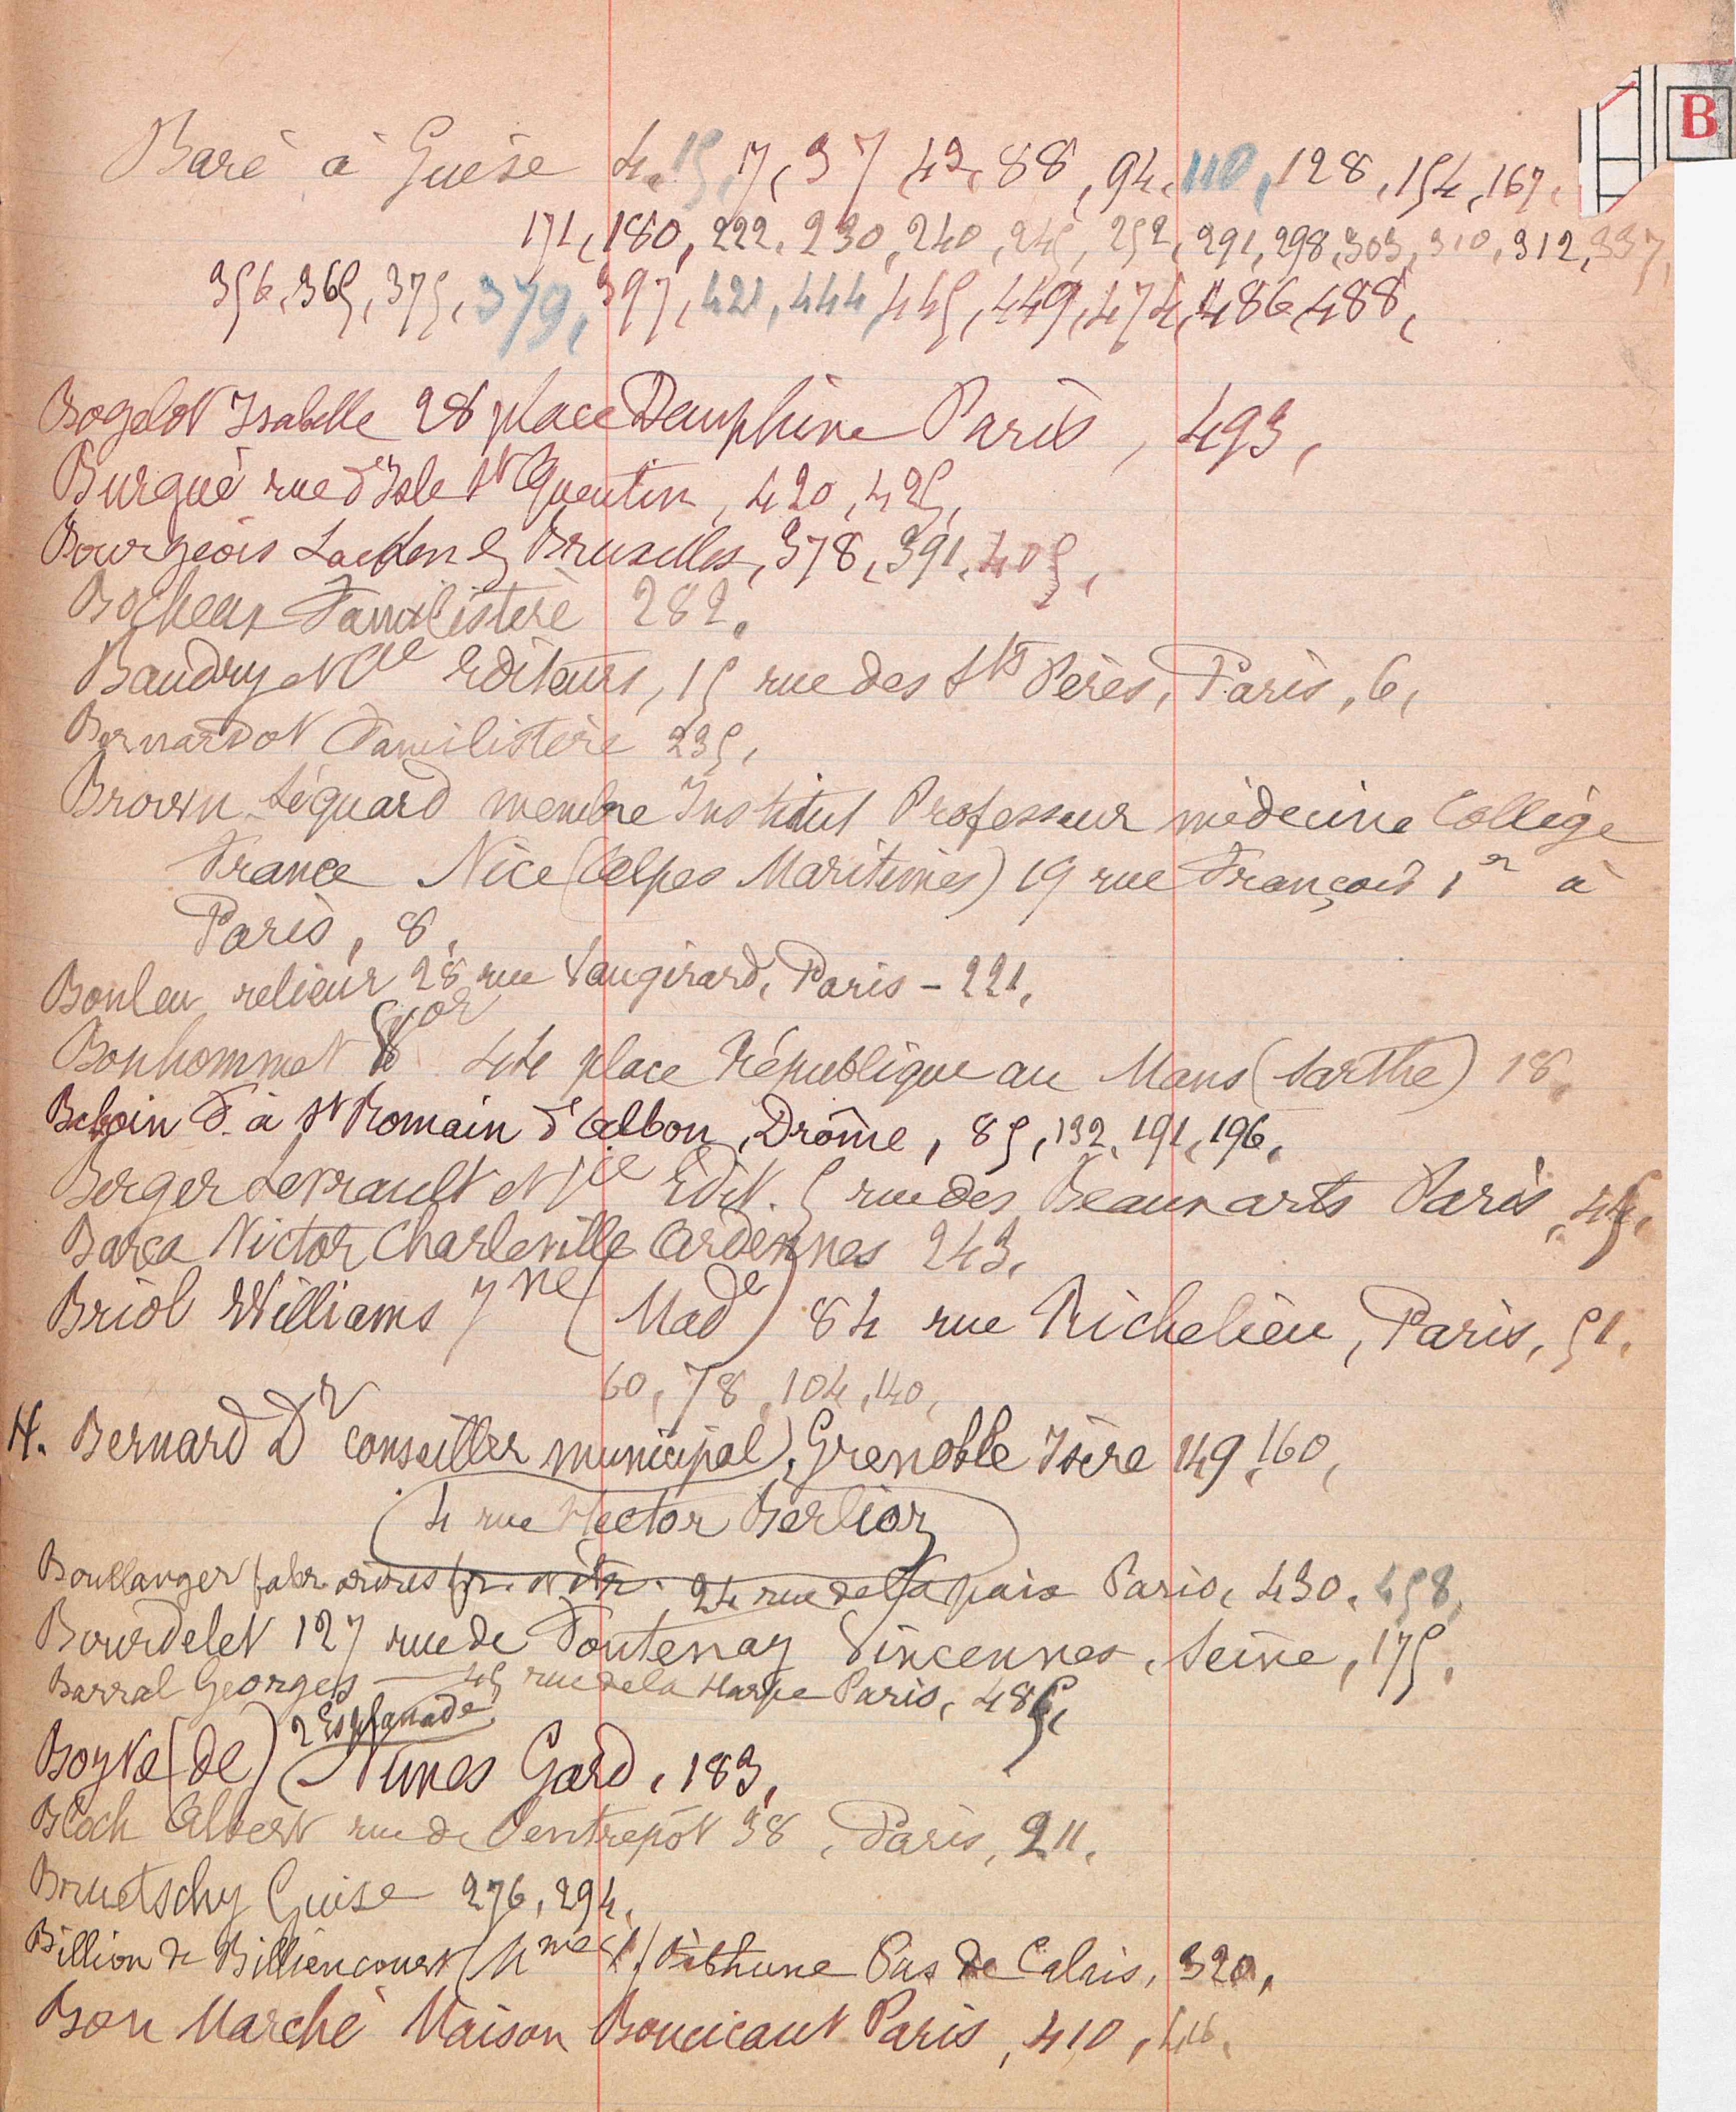 B
Baré à Guise 4, 15, 7, 37, 42, 88, 94, 110, 128, 154, 167,
171, 180, 222, 230, 240, 245, 252, 291, 298, 303, 310, 312, 337,
356, 365, 375, 379, 397, 421, 444, 445, 449, 474, 486, 488,
Bogelot Isabelle 28 place Dauphine Paris, 493,
Burgué rue d'Isle St Quentin, 420, 425,
Bourgeois Laeken lz Bruxelles, 378, 391, 405,
Bocheux Familistère 282,
Baudry et Cie Editeurs, 15 rue des Sts Pères, Paris, 6,
Bernardot Familistère 235,
Brown-Séquard membre Institut Professeur médecine Collège
France Nice (Alpes Maritimes) 19 rue François 1er à
Paris, 8,
Bouleu relieur 28 rue Vaugirard, Paris – 221,
Bonhommet 44 place République au Mans (Sarthe) 18,
Baboin F. à St Romain d'Albon, Drôme, 85, 132, 191, 196,
Berger Levrault et Cie Edit. 5 rue des Beaux arts Paris, 45,
Barca Victor Charleville Ardennes 243,
Briol Williams 7ne (Made) 84 rue Richelieu, Paris, 51,
60, 78, 104, 140,
H. Bernard Dr conseiller municipal, Grenoble Isère 149, 160,
4 rue Hector Berlioz
Boullanger fabr 24 rue de la paix Paris, 430, 458,
Bourdelet 127 rue de Fontenay Vincennes, Seine, 175,
Barral Georges — 45 rue de la Harpe Paris, 485,
2 Esplanade
Boyve (de) Nimes Gard, 183,
Bloch Albert rue de l'entrepôt 38, Paris, 211,
Bruetschy Guise 276, 294,
Billion de Billiencourt Béthune Pas de Calais, 320,
Bon Marché Maison Boucicaut Paris, 410, 416,